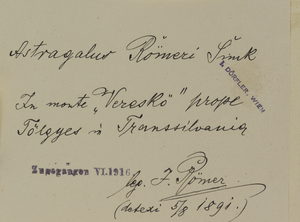 Astragalus Römeri Simk
A. DÖRFLER, WIEN
In monte „Vereskö" prope
Tölgyes in Transsilvania
Zugegangen VI.1916
leg. J. Römer
(detexi 5/8 1891.)